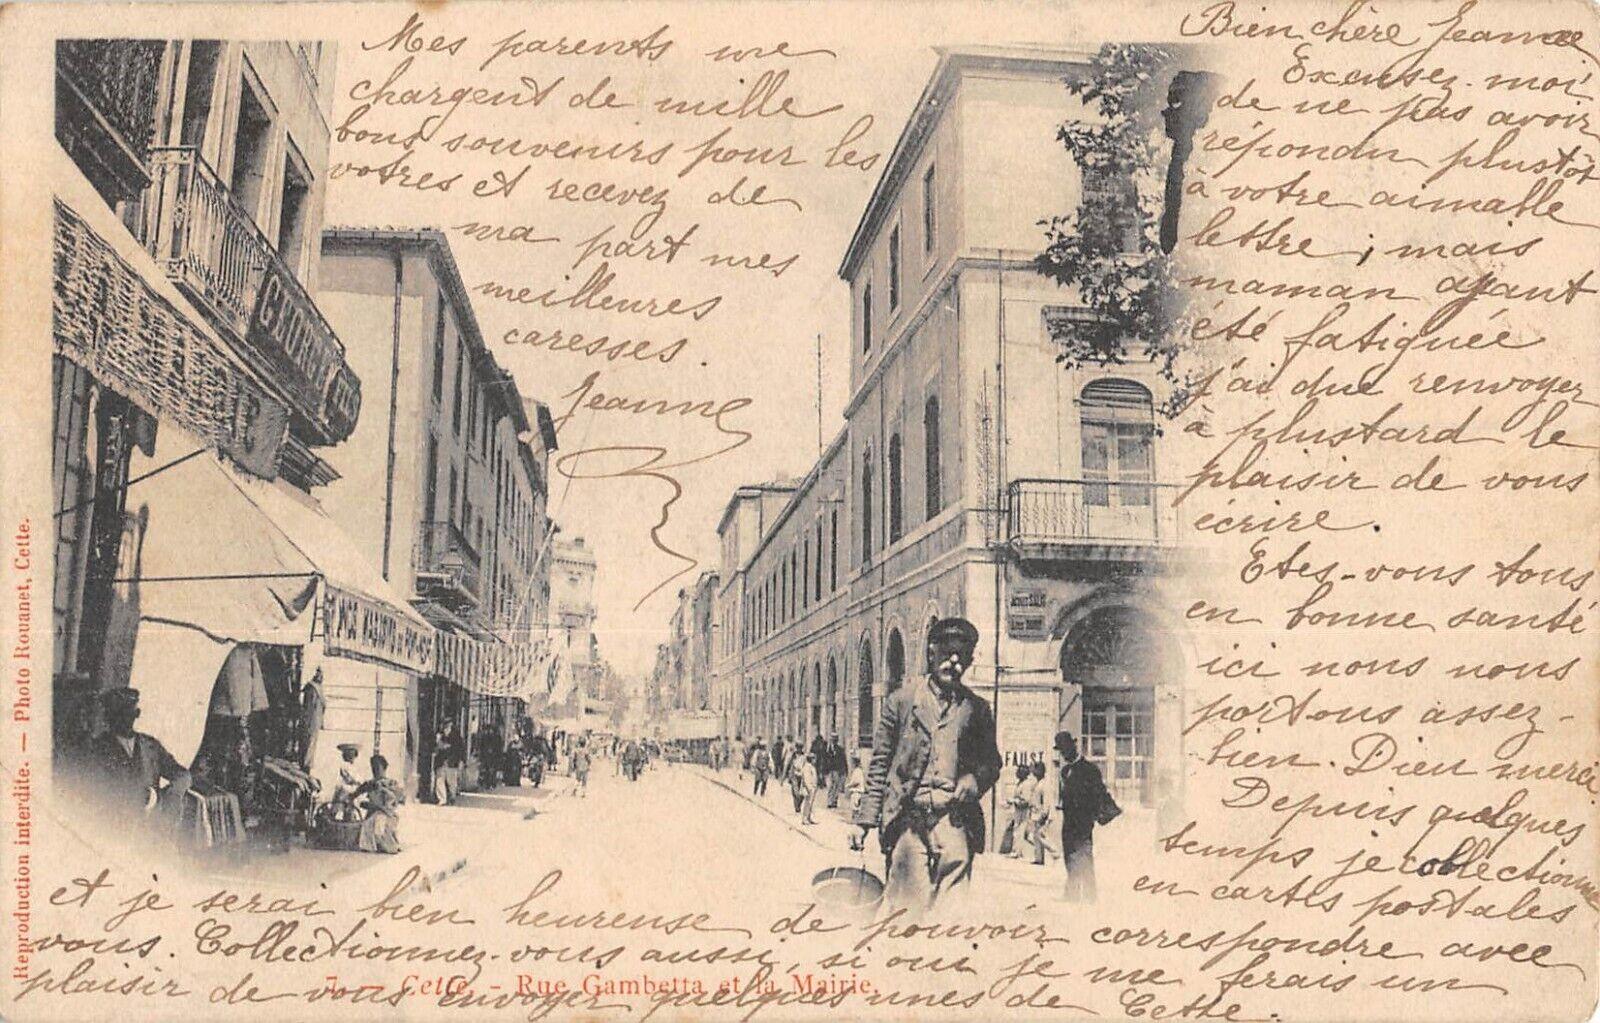 Bien chère Jeanne
Excusez-moi
de ne pas avoir
répondu plustôt
à votre aimable
lettre; mais
maman ayant
été fatiguée
j'ai due renvoyer
à plustard le
plaisir de vous
écrire.
Etes-vous tous
en bonne santé
ici nous nous
portons assez-
bien. Dieu merci
Depuis quelques
temps je collectionne
en cartes postales
et je serai bien heureuse de pouvoir correspondre avec
vous. Collectionnez-vous aussi, si oui je me ferais un
plaisir de vous envoyer quelques unes de Cette.
Mes parents me
chargent de mille
bons souvenirs pour les
votres et recevez de
ma part mes
meilleures
caresses.
Jeanne
FAUST
7. — Cette. - Rue Gambetta et la Mairie.
Reproduction interdite. — Photo Rouanet, Cette.